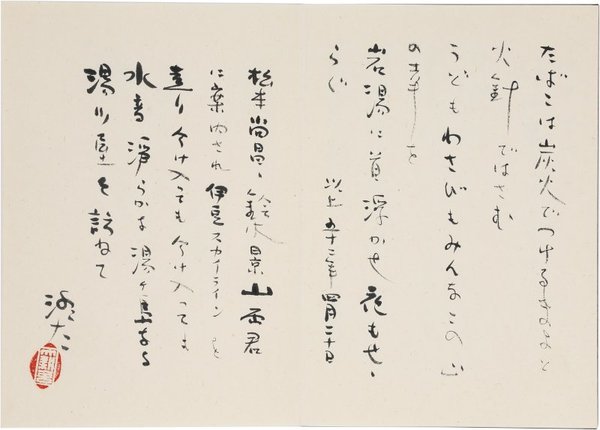 たばこは炭火でつける
火針ではさむ
うどもわさびもみんなこの山
の を
岩湯に首浮かせ花もせゝ
らぐ 以上 五十二年四月二十日
松本尚昌、鈴木景山両君
に案内され伊豆スカイラインを
走り分け入っても分け入っても
水音浄らかな湯ヶ島なる
湯川屋を訪ねて